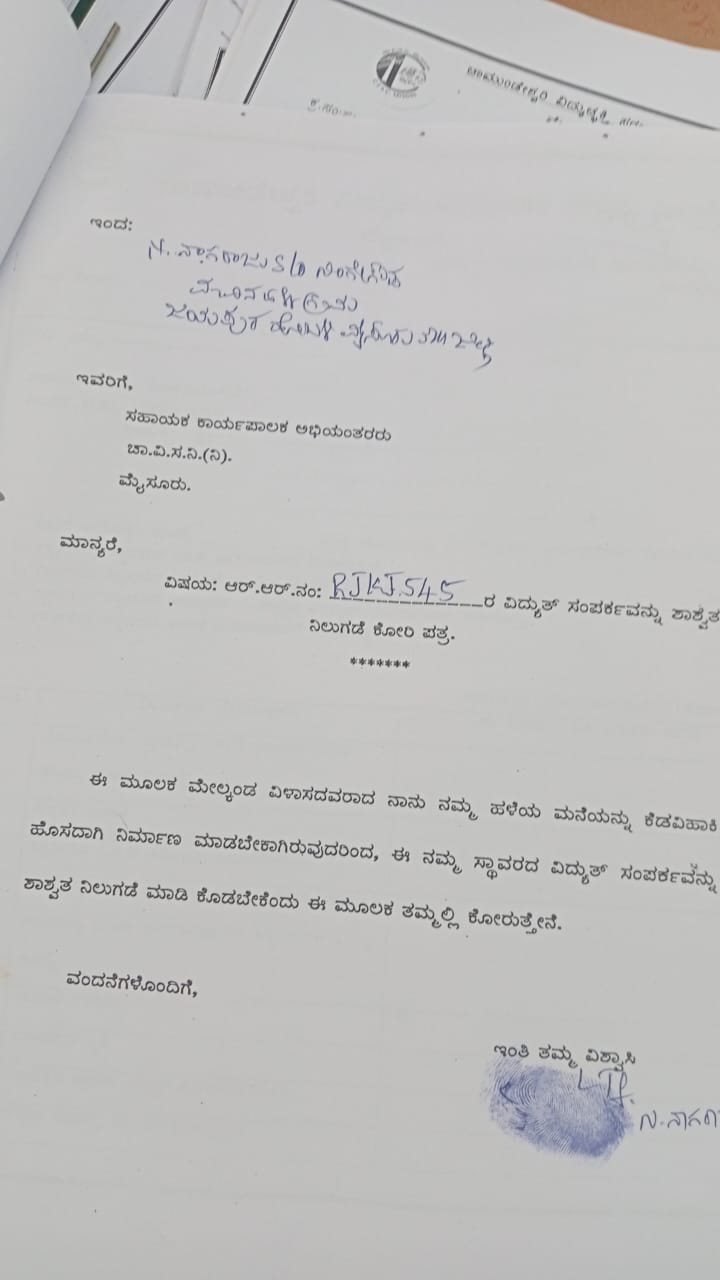 ಚಾಮುಂಡೇಶ್ವರಿ ವಿದ್ಯುಚ್ಛಕ್ತಿ
ಇಂದ:
N. ನಾಗರಾಜು S/o ನಿಂಗೇಗೌಡ
ಜಯಪುರ ಹೋಬಳಿ ಮೈಸೂರು
ಇವರಿಗೆ,
ಸಹಾಯಕ ಕಾರ್ಯಪಾಲಕ ಅಭಿಯಂತರರು
ಚಾ.ವಿ.ಸ.ನಿ.(ನಿ).
ಮೈಸೂರು.
ಮಾನ್ಯರೆ,
ವಿಷಯ: ಆರ್.ಆರ್.ನಂ: RJKJ545 ರ ವಿದ್ಯುತ್ ಸಂಪರ್ಕವನ್ನು ಶಾಶ್ವತ
ನಿಲುಗಡೆ ಕೋರಿ ಪತ್ರ.
*******
ಈ ಮೂಲಕ ಮೇಲ್ಕಂಡ ವಿಳಾಸದವರಾದ ನಾನು ನಮ್ಮ ಹಳೆಯ ಮನೆಯನ್ನು ಕೆಡವಿಹಾಕಿ
ಹೊಸದಾಗಿ ನಿರ್ಮಾಣ ಮಾಡಬೇಕಾಗಿರುವುದರಿಂದ, ಈ ನಮ್ಮ ಸ್ಥಾವರದ ವಿದ್ಯುತ್ ಸಂಪರ್ಕವನ್ನು
ಶಾಶ್ವತ ನಿಲುಗಡೆ ಮಾಡಿ ಕೊಡಬೇಕೆಂದು ಈ ಮೂಲಕ ತಮ್ಮಲ್ಲಿ ಕೋರುತ್ತೇನೆ.
ವಂದನೆಗಳೊಂದಿಗೆ,
ಇಂತಿ ತಮ್ಮ ವಿಶ್ವಾಸಿ
N. ನಾಗರಾ